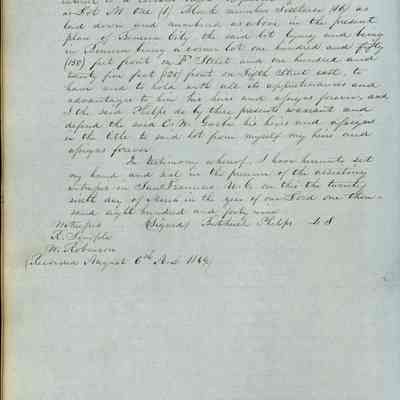 as Lot No One (1) Block number Sixteen (16) as
laid down and numbered as above in the present
plan of Benicia City the said lot lying and being
in Benicia being a corner lot one hundred and fifty
(150) feet front on D Street and one hundred and
twenty five feet (125) front on Fifth Street east, to
have and to hold with all its appurtenances and
advantages to him his heirs and assigns forever, and
I the said Phelps do by these presents warrant and
defend the said C. M. his heirs and assigns
in the title to said lot from myself my heirs and
assigns forever
In testimony whereof, I have hereunto set
my hand and seal in the presence of the
witnesses in San Francisco U.C. on this the twenty
sixth day of March in the year of our Lord one thou-
sand eight hundred and forty nine
Witnesses (Signed) Phelps L S
R. Semple
W. Robinson
(Recorded August 6th A.D. 1849)